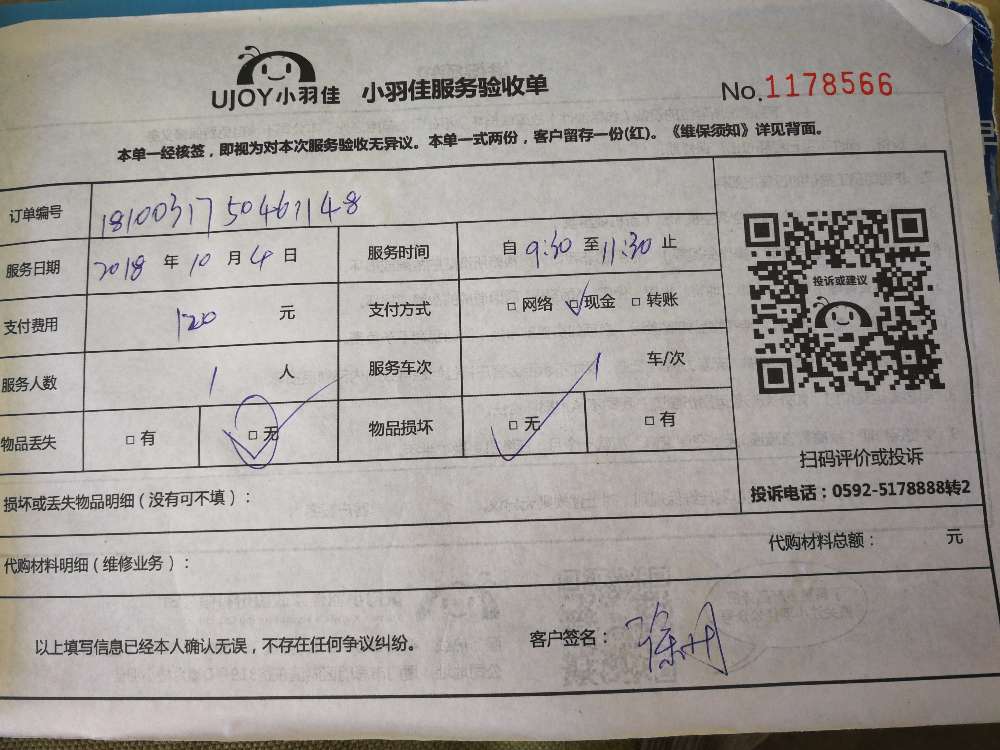 UJOY小羽佳 小羽佳服务验收单 No.1178566
本单一经核签，即视为对本次服务验收无异议。本单一式两份，客户留存一份(红)。《维保须知》详见背面。
订单编号 18100317504671148
服务日期 2018 年 10 月 4 日 服务时间 自 9:30 至 11:30 止
支付费用 120 元 支付方式 □ 网络 □ 现金 □ 转账
服务人数 1 人 服务车次 1 车/次
物品丢失 □ 有 □ 无 物品损坏 □ 无 □ 有
投诉或建议
扫码评价或投诉
投诉电话：0592-5178888转2
损坏或丢失物品明细（没有可不填）：
代购材料明细（维修业务）： 代购材料总额： 元
以上填写信息已经本人确认无误，不存在任何争议纠纷。 客户签名：